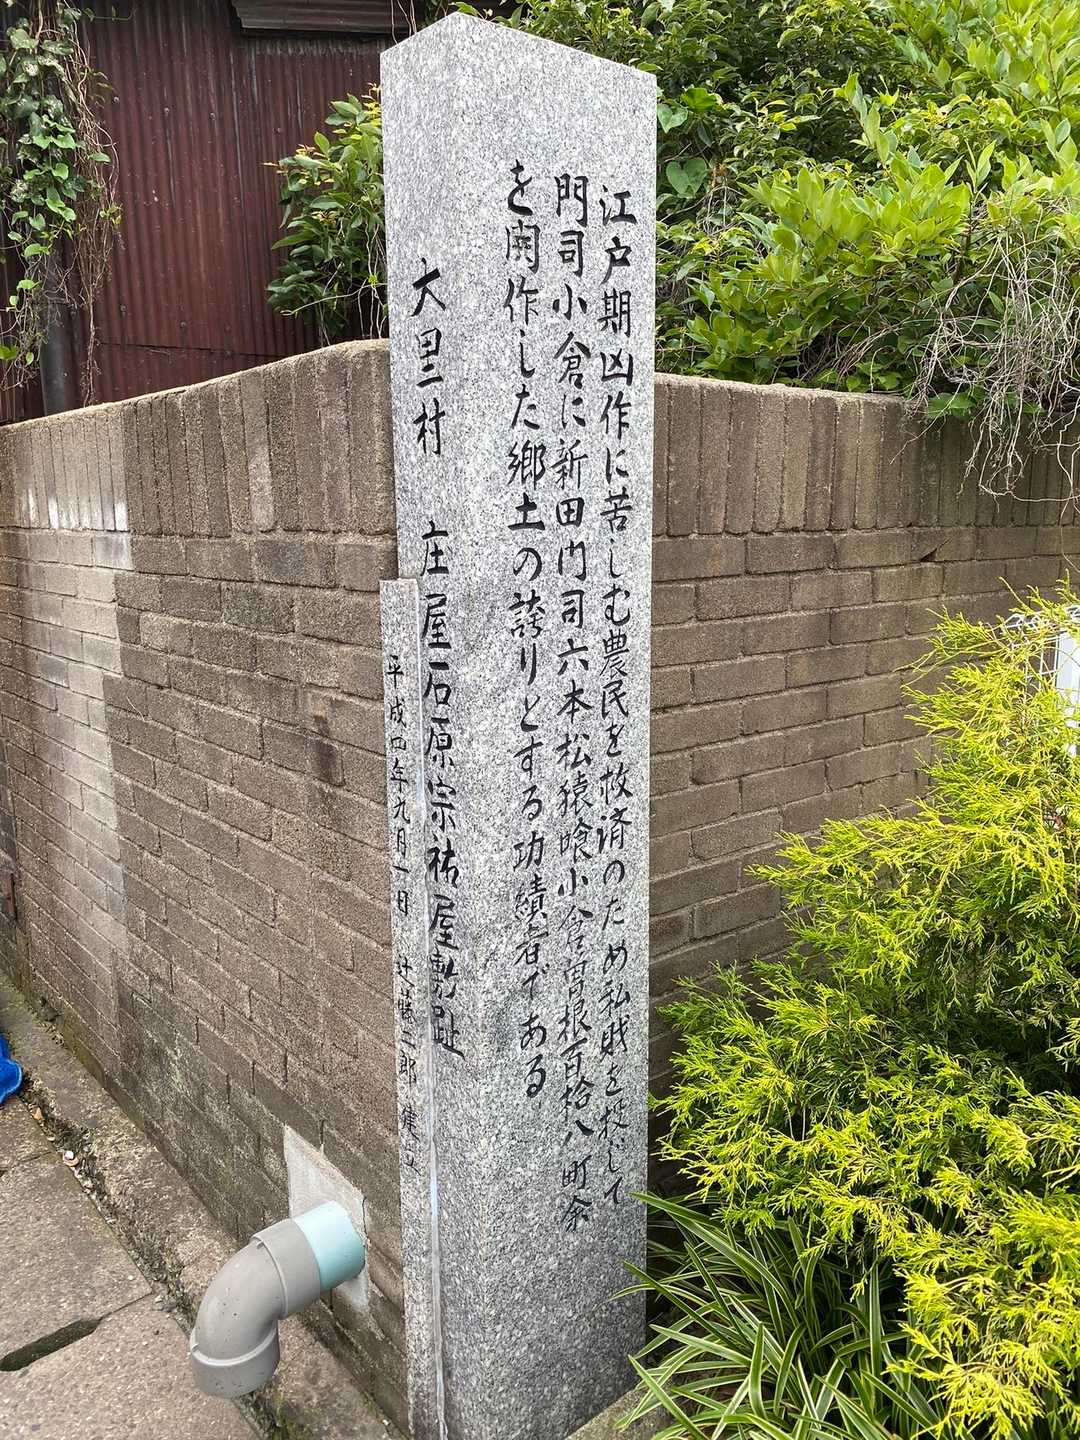 江戸期凶作に苦しむ農民を救済のため私財を投じて
門司小倉に新田門司六本松猿喰小倉曽根百拾八町余
を開作した郷土の誇りとする功績者である
大里村 庄屋石原宗祐屋敷趾
平成四年九月一日 藤二郎 建立